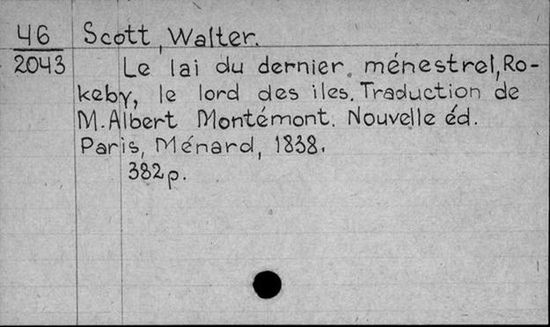 46 Scott, Walter.
2043 Le lai du dernier ménestrel, Ro-
keby, le lord des iles. Traduction de
M. Albert Montémont. Nouvelle éd.
Paris, Ménard, 1838.
382 p.